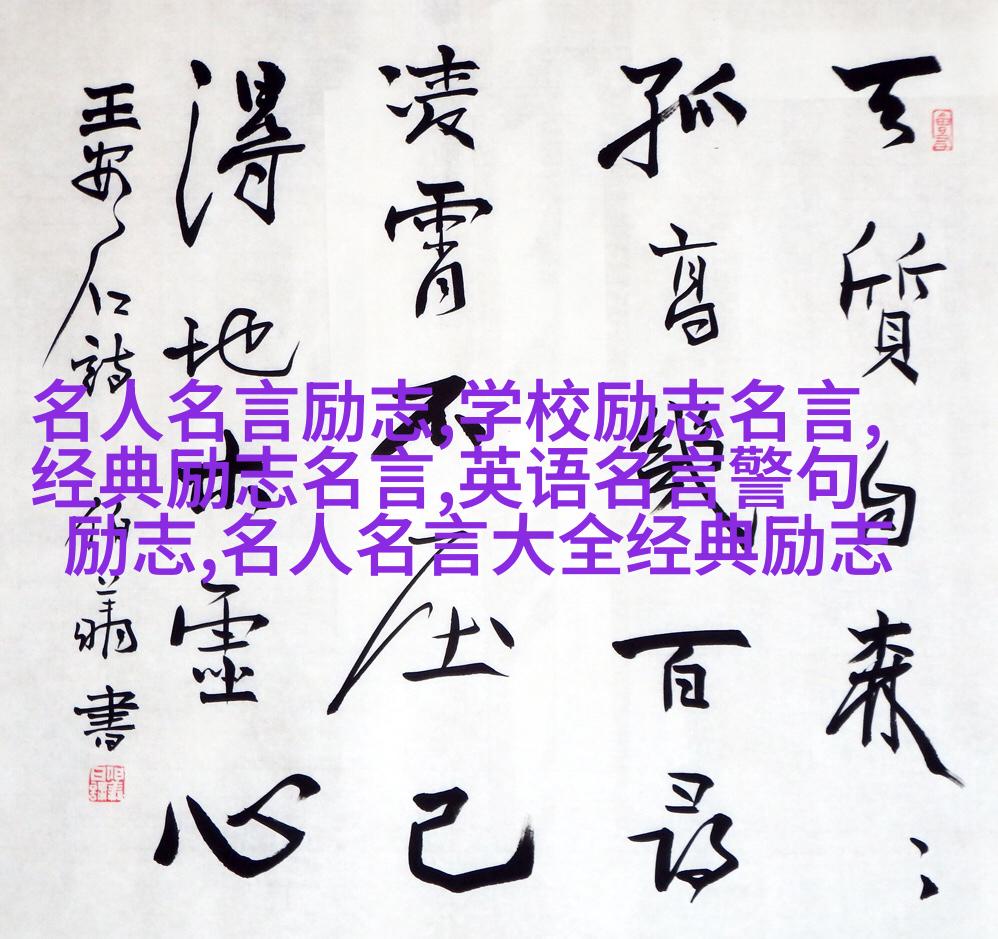 天質自森々
孤高幾百尋
凌霄不屈己
得地本虛心
王安石詩 書
名人名言励志,学校励志名言,
经典励志名言,英语名言警句
励志,名人名言大全经典励志